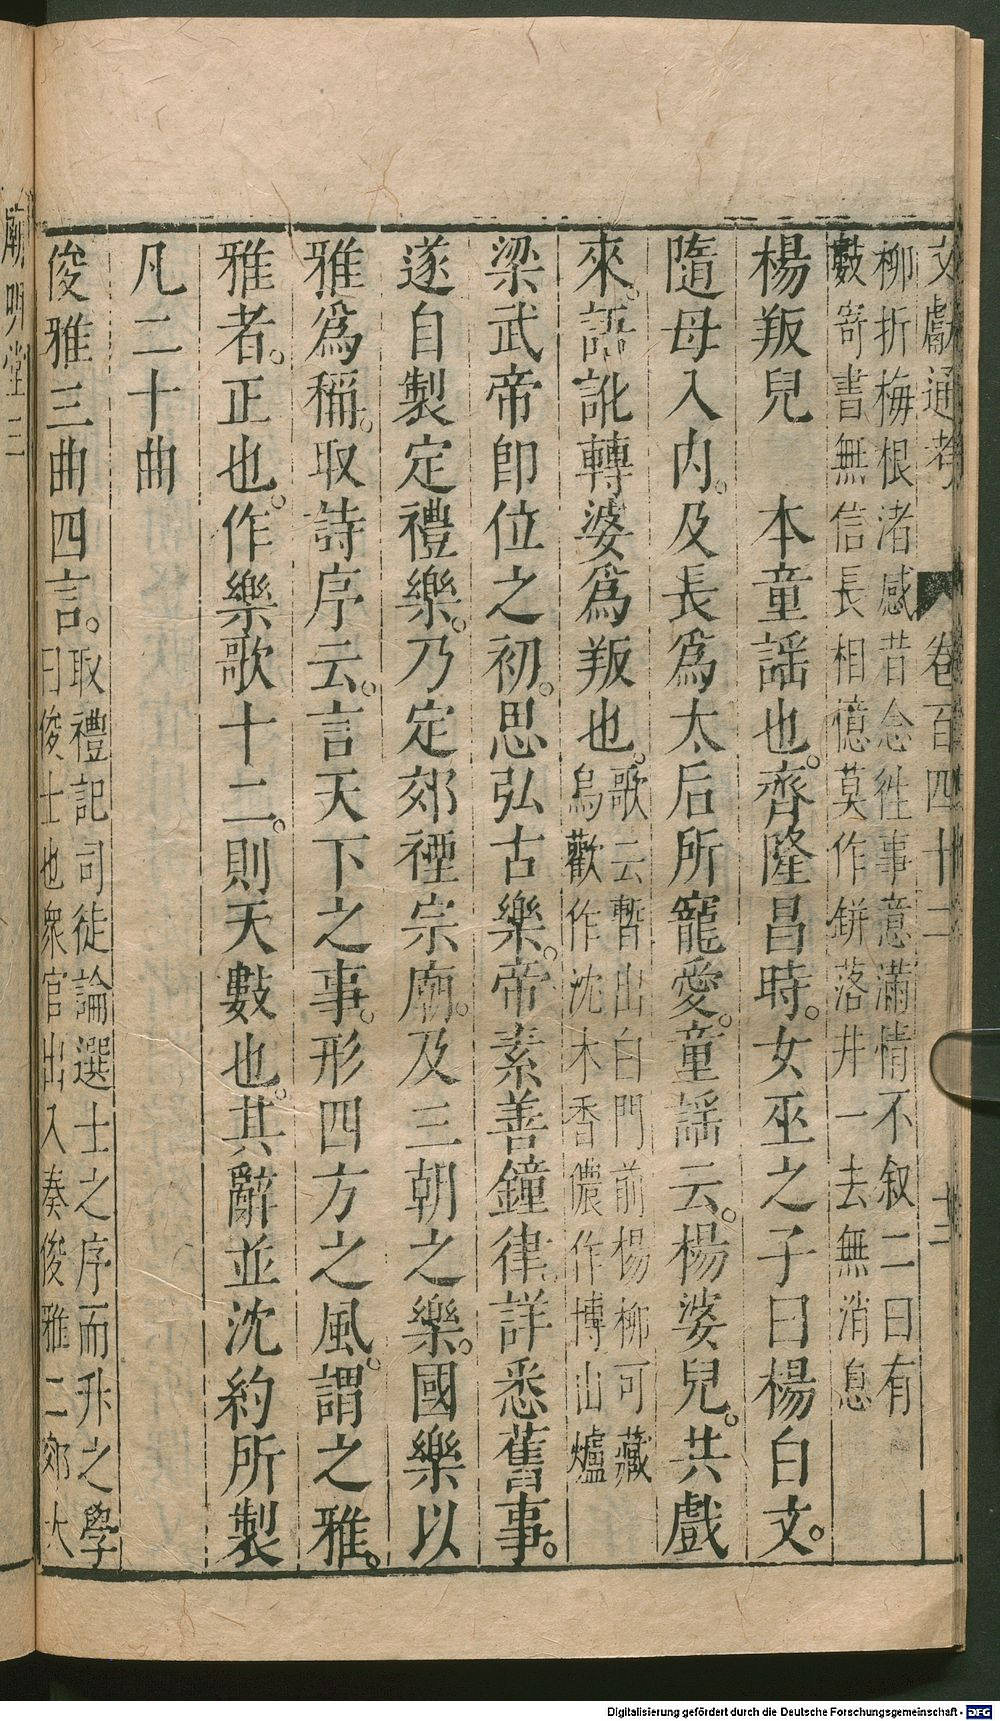 文獻通考 卷百四十二
柳折梅根渚感昔念徃事意滿情不叙二曰有
數寄書無信長相憶莫作鉼落井一去無消息
楊叛兒 本童謡也。齊隆昌時。女巫之子曰楊白文。
隨母入内。及長爲太后所寵愛。童謡云。楊婆兒。共戲
來。語訛轉婆爲叛也。歌云暫出白門前楊柳可藏
烏歡作沈木香儂作博山爐
梁武帝即位之初。思弘古樂。帝素善鐘律。詳悉舊事。
遂自製定禮樂。乃定郊禋宗廟。及三朝之樂。國樂以
雅爲稱。取詩序云。言天下之事。形四方之風。謂之雅。
雅者。正也。作樂歌十二。則天數也。其辭並沈約所製
凡二十曲
俊雅三曲四言。取禮記司徒論選士之序而升之學
曰俊士也衆官出入奏俊雅二郊太
廟明堂三
Digitalisierung gefördert durch die Deutsche Forschungsgemeinschaft - DFG